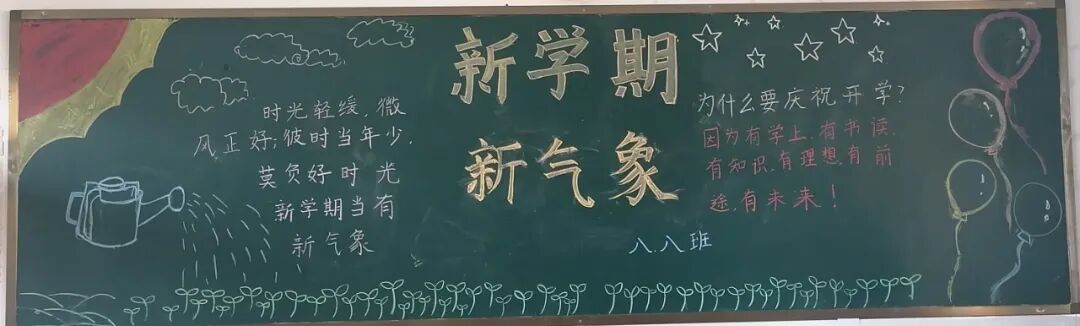 时光轻缓，微
风正好；彼时当年少，
莫负好时光
新学期当有
新气象
新学期
新气象
为什么要庆祝开学？
因为有学上，有书读，
有知识，有理想，有前
途，有未来！
八八班